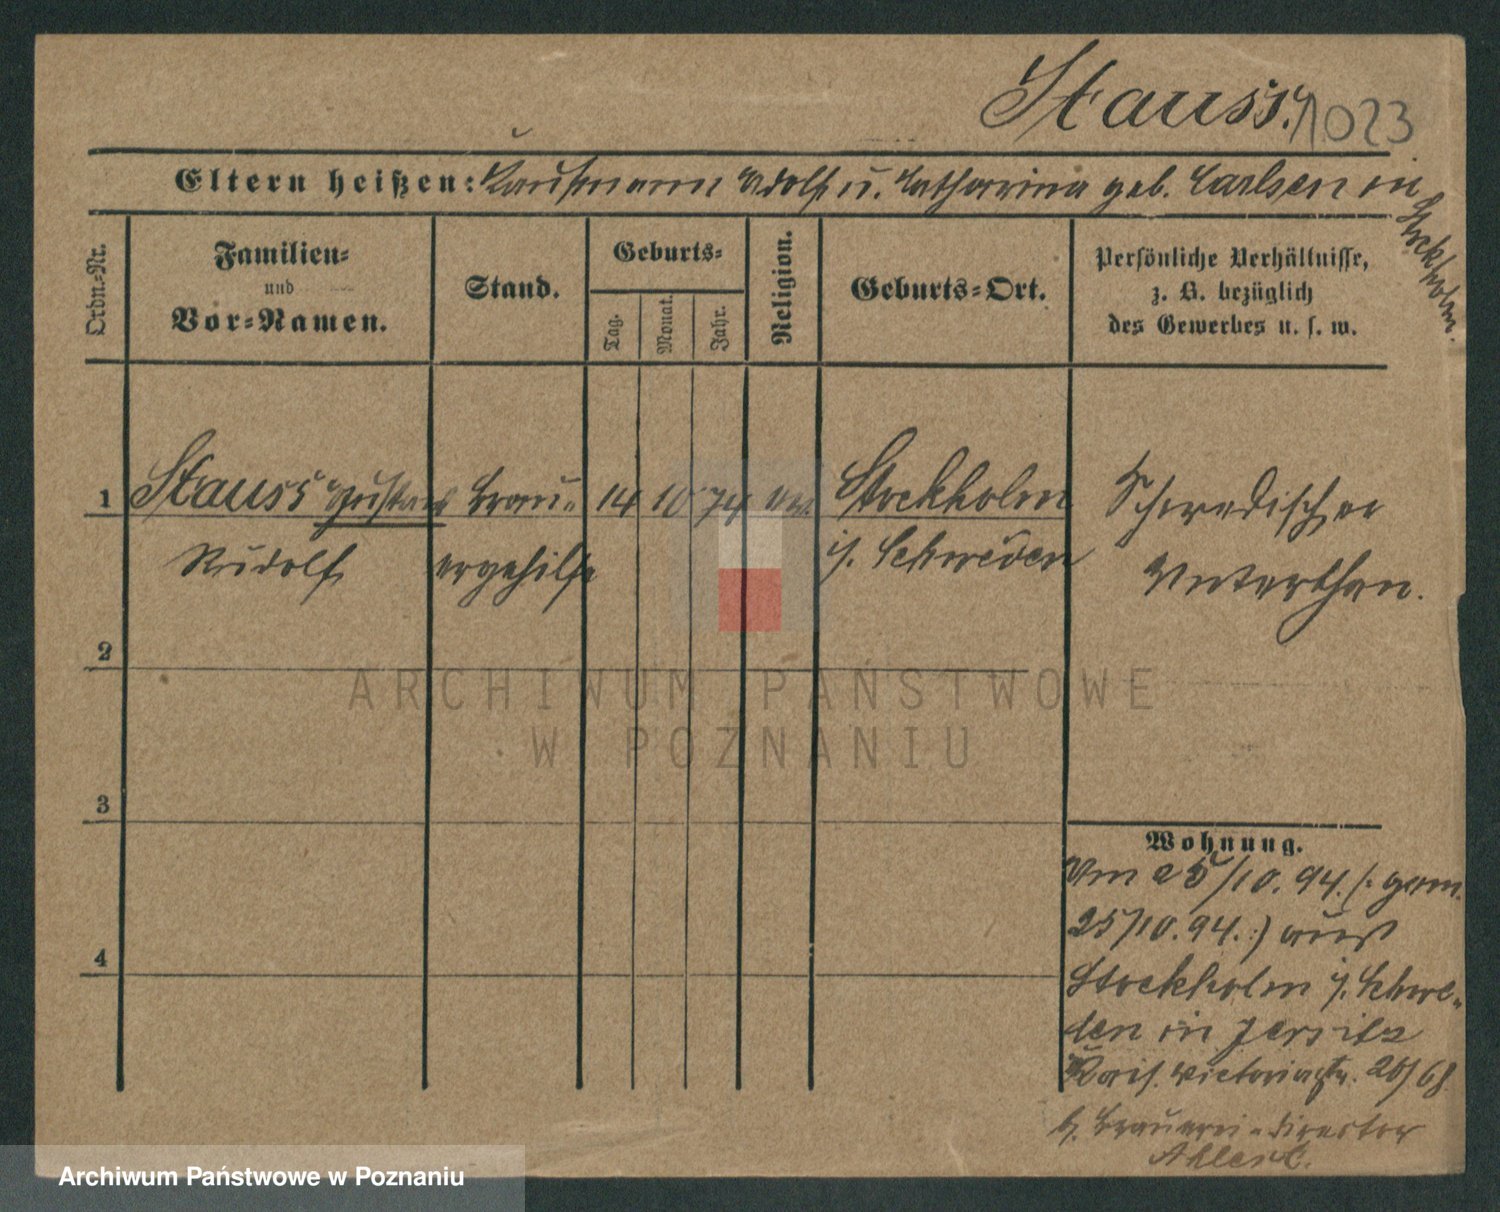 Stauss.
1023
Eltern heißen: Kaufmann Adolf u. Catharina geb. Carlsen in
Stockholm.
Ordn.-Nr.
Familien-
und
Vor-Namen.
Stand.
Geburts-
Tag.
Monat.
Jahr.
Religion.
Geburts-Ort.
Persönliche Verhältnisse,
z. B. bezüglich
des Gewerbes u. s. w.
1
Stauss Gustav
Rudolf
Brau-
ergehilfe
14
10
74
ev.
Stockholm
i/. Schweden
Schwedischer
Unterthan.
2
3
4
Wohnung.
Am 25/10. 94. (: gem.
25/10. 94. :) aus
Stockholm i/. Schwe-
den in Jersitz
Victoriastr. 26/68
b. Brauerei-Director
ARCHIWUM PAŃSTWOWE
W POZNANIU
Archiwum Państwowe w Poznaniu